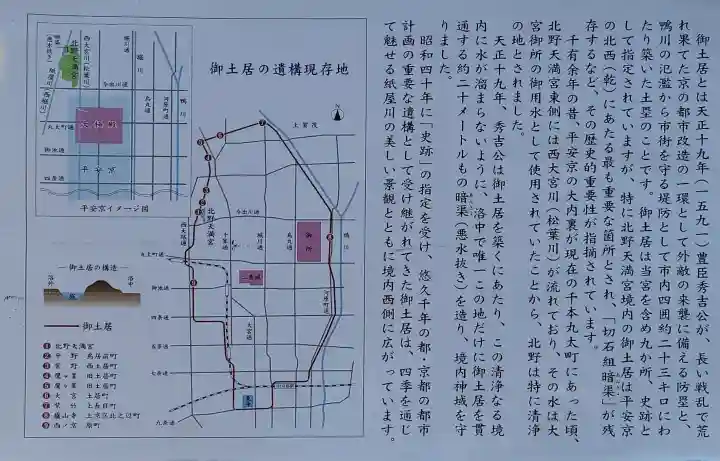 御土居とは天正十九年（一五九一）豊臣秀吉公が、長い戦乱で荒
れ果てた京の都市改造の一環として外敵の来襲に備える防塁と、
鴨川の氾濫から市街を守る堤防として市内四囲約二十三キロにわ
たり築いた土塁のことです。御土居は当宮を含め九か所、史跡と
して指定されていますが、特に北野天満宮境内の御土居は平安京
の北西（乾）にあたる最も重要な箇所とされ、「切石組暗渠」が残
存するなど、その歴史的重要性が指摘されています。
千有余年の昔、平安京の大内裏が現在の千本丸太町にあった頃、
北野天満宮東側には西大宮川（松葉川）が流れており、その水は大
宮御所の御用水として使用されていたことから、北野は特に清浄
の地とされました。
天正十九年、秀吉公は御土居を築くにあたり、この清浄なる境
内に水が溜まらないように、洛中で唯一この地だけに御土居を貫
通する約二十メートルもの暗渠（悪水抜き）を造り、境内神域を守
りました。
昭和四十年に「史跡」の指定を受け、悠久千年の都・京都の都市
計画の重要な遺構として受け継がれてきた御土居は、四季を通じ
て魅せる紙屋川の美しい景観とともに境内西側に広がっています。
御土居の遺構現存地
北野天満宮
西大宮川（松葉川）
堀川
烏丸通
河原町通
鴨川
今出川通
丸太町通
御池通
四条通
大極殿
平安京
平安京イメージ図
上賀茂
北野天満宮
西大路通
今出川通
千本通
堀川通
烏丸通
御所
鴨川
河原町通
丸太町通
二条城
大宮通
四条通
五条通
七条通
九条通
東寺
御土居の構造
洛外
洛中
堀
御土居
❶ 北野天満宮
❷ 平野 鳥居前町
❸ 紫野 西土居町
❹ 鷹ヶ峯 旧土居町
❺ 鷹ヶ峯 旧土居町
❻ 大宮 土居町
❼ 紫竹 上長目町
❽ 盧山寺 上京区北之辺町
❾ 西ノ京 原町